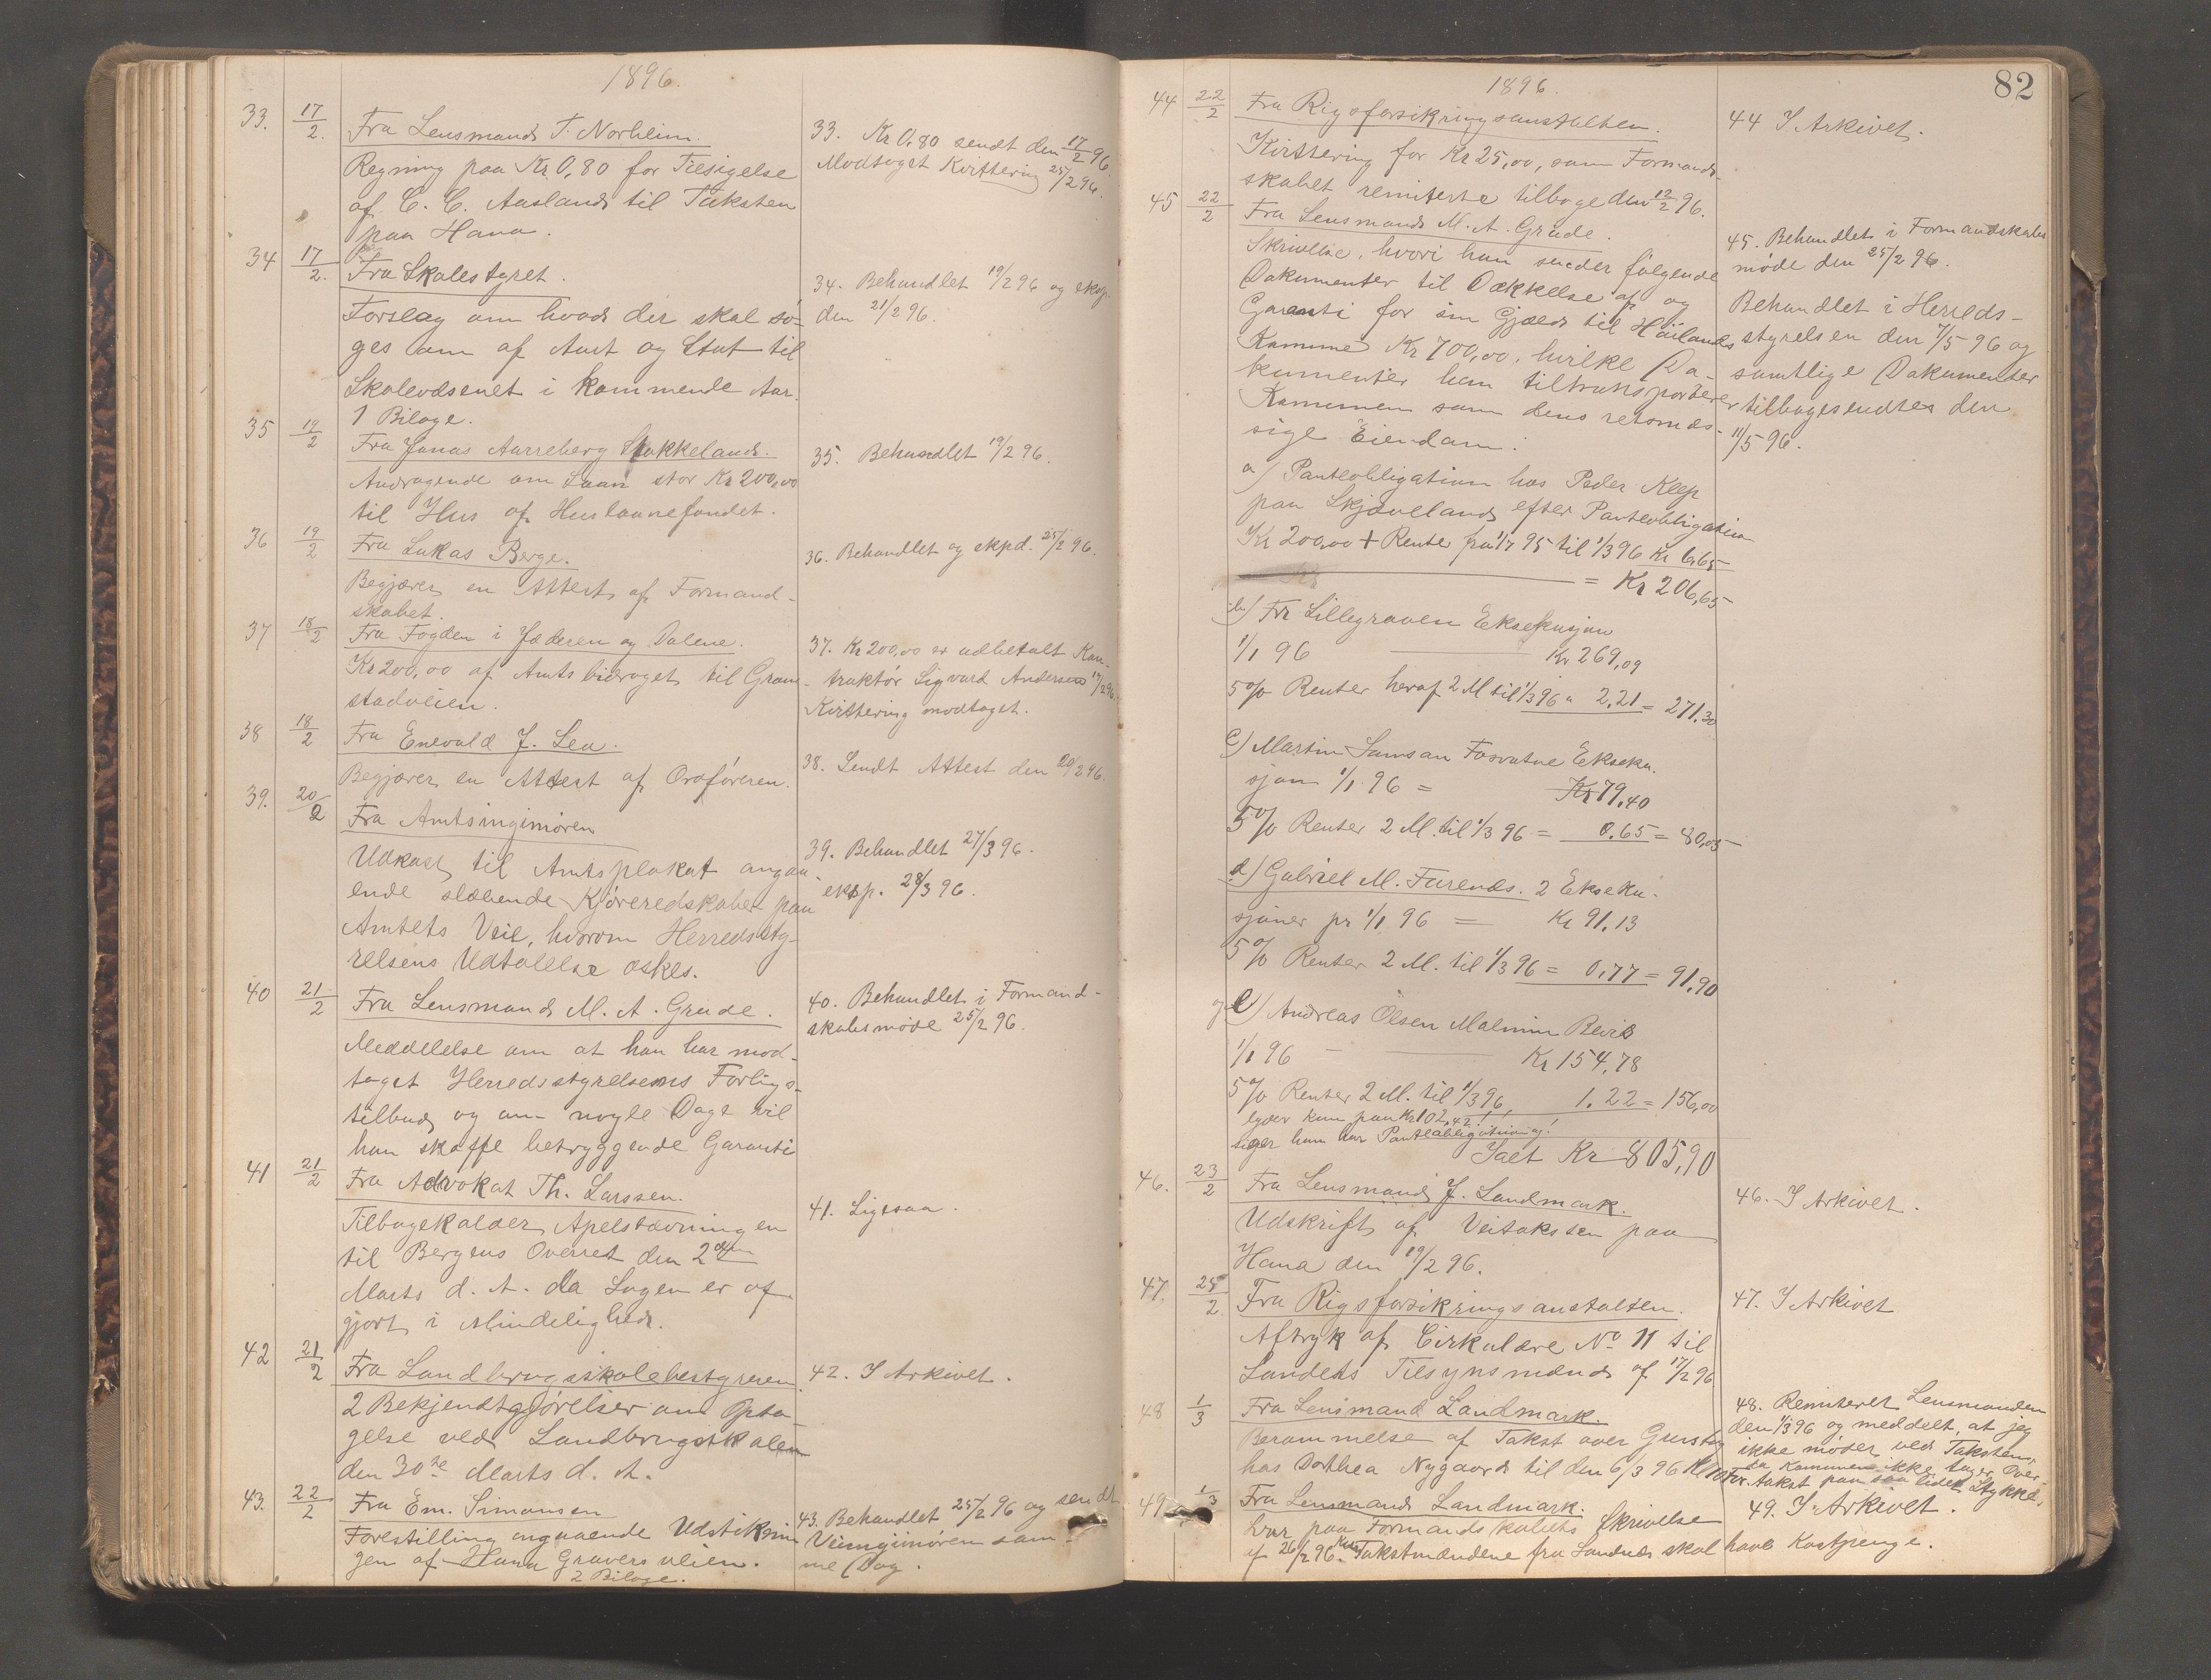 1896.
33. 17/2. Fra Lensmand T. Norheim.
Regning paa Kr 0,80 for Tilsigelse
af C. C. Aaslands til Taksten
paa Hana.
33. Kr 0,80 sendt den 17/2 96.
Modtaget Kvittering 25/2 96.
34 17/2. Fra Skolestyret.
Forslag om hvad der skal sö-
ges om af Amt og Stat til
Skolevæsenet i kommende Aar.
1 Bilage.
34. Behandlet 19/2 96 og eksp.
den 21/2 96.
35 19/2 Fra Jonas Aarreberg Stokkeland.
Andragende om Laan stor Kr 200,00
til Hus af Huslaanefondet.
35. Behandlet 19/2 96.
36 19/2 Fra Lukas Berge.
Begjærer en Attest af Formand-
skabet.
36. Behandlet og ekpd. 25/2 96.
37 18/2 Fra Fogden i Jæderen og Dalene.
Kr 200,00 af Amtsbidraget til Gram-
stadveien.
37. Kr 200,00 er udbetalt Kon-
traktör Sigvard Andersen 19/2 96.
Kvittering modtaget.
38 18/2 Fra Enevald J. Lea.
Begjærer en Attest af Ordföreren.
38. Sendt Attest den 20/2 96.
39. 20/2 Fra Amtsingeniören
Udkast til Amtsplakat angaa-
ende slæbende Kjöreredskaber paa
Amtets Veie, hvorom Herredssty-
relsens Udtalelse æskes.
39. Behandlet 27/3 96.
eksp. 28/3 96.
40 21/2 Fra Lensmand M. A. Grude.
Meddelelse om at han har mod-
taget Herredsstyrelsens Forligs-
tilbud og om nogle Dage vil
han skaffe betryggende Garanti
40. Behandlet i Formand-
skabsmöde 25/2 96.
41 21/2 Fra Advokat Th. Larssen.
Tilbagekalder Apelstævningen
til Bergens Overret den 2den
Marts d. A. da Sagen er af-
gjort i Mindelighed.
41. Ligesaa.
42 21/2 Fra Landbrugsskolebestyreren.
2 Bekjendtgjörelser om Opta-
gelse ved Landbrugsskolen
den 30te Marts d. A.
42. I Arkivet.
43. 22/2 Fra Em. Simonsen
Forestilling angaaende Udstiknin
gen af Hana Gravers veien.
2 Bilage.
43. Behandlet 25/2 96 og sendt
Veiingeniören sam-
me Dag.
82
1896.
44 22/2 Fra Rigsforsikringsanstalten.
Kvittering for Kr 25,00, som Formand-
skabet remiterte tilbage den 12/2 96.
44 I Arkivet.
45 22/2 Fra Lensmand M. A. Grude.
Skrivelse, hvori han sender fölgende
Dokumenter til Dækkelse af og
Garanti for sin Gjæld til Höilands
Kommune Kr 700,00, hvilke Do-
kumenter han tiltransporterer
Kommunen som dens retmæs-
sige Eiendom:
a) Panteobligation hos Peder Klep
paa Skjævelands efter Panteobligation
Kr 200,00 + Rente fra 1/7 95 til 1/3 96 Kr 6,65
= Kr 206,65
b) Fr Lillegraven Eksekusjon
1/1 96 Kr 269,09
5% Renter heraf 2 M til 1/3 96 " 2,21 = 271,30
c) Martin Samson Fosvatne Ekseku-
sjon 1/1 96 = Kr 79,40
5% Renter 2 M. til 1/3 96 = 0,65 = 80,05
d) Gabriel M. Furenes. 2 Ekseku-
sjoner pr 1/1 96 = Kr 91,13
5% Renter 2 M. til 1/3 96 = 0,77 = 91,90
og e) Andreas Olsen Malmin Bevis
1/1 96 Kr 154,78
5% Renter 2 M. til 1/3 96 1,22 = 156,00
lyder kun paa Kr 102,42!
siger han har Panteobligation og!
Ialt Kr 805,90
45. Behandlet i Formandskabs
möde den 25/2 96.
Behandlet i Herreds-
styrelsen den 7/5 96 og
samtlige Dokumenter
tilbagesendtes den
11/5 96.
46. 23/2 Fra Lensmand J. Landmark.
Udskrift af Veitaksten paa
Hana den 19/2 96.
46. I Arkivet.
47. 25/2 Fra Rigsforsikringsanstalten.
Aftryk af Cirkulære No 11 til
Landets Tilsynsmænd af 17/2 96
47. I Arkivet
48 1/3 Fra Lensmand Landmark.
Berammelse af Takst over Grustag
hos Dorthea Nygaard til den 6/3 96 Kl 10 For.
48. Remiteret Lensmanden
den 1/3 96 og meddelt, at jeg
ikke möder ved Taksten,
da Kommunen ikke tager Over-
takst paa saa lidet Stykke.
49. 1/3 Fra Lensmand Landmark.
Svar paa Formandskabets Skrivelse
af 26/2 96. Kun Takstmændene fra Sandnes skal have Kostpenge.
49. I Arkivet.